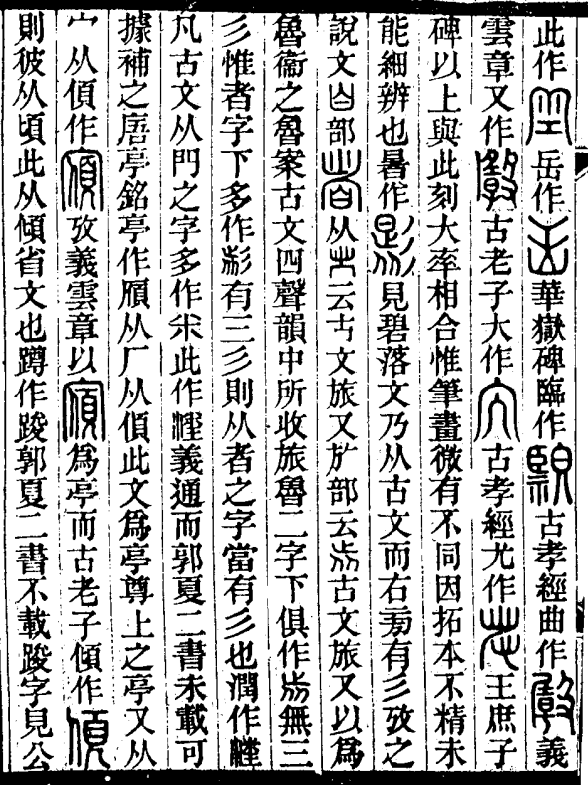 此作岳作華嶽碑臨作古孝經曲作義
雲章又作古老子大作古孝經尤作王庶子
碑以上與此刻大率相合惟筆畫微有不同因拓本不精未
能細辨也暑作見碧落文乃从古文而右旁有彡攷之
說文白部从云古文旅又㫃部云古文旅又以爲
魯衞之魯案古文四聲韻中所收旅魯二字下俱作無三
彡惟者字下多作有三彡則从者之字當有彡也潤作
凡古文从門之字多作此作義通而郭夏二書未載可
據補之唐亭銘亭作从厂从傎此文爲亭尊上之亭又从
宀从傎作攷義雲章以爲亭而古老子傾作
則彼从頃此从傾省文也蹲作踆郭夏二書不載踆字見公